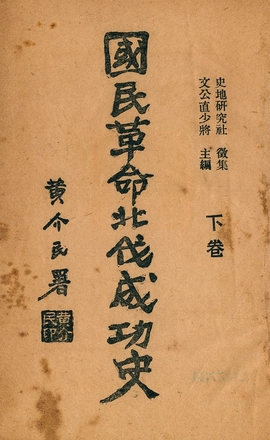 史地研究社 徵集
文公直少將 主編
下卷
國民革命北伐成功史
黃介民署
黃介民印